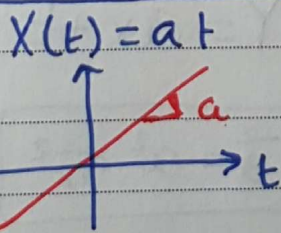 X(t) = at
a
t